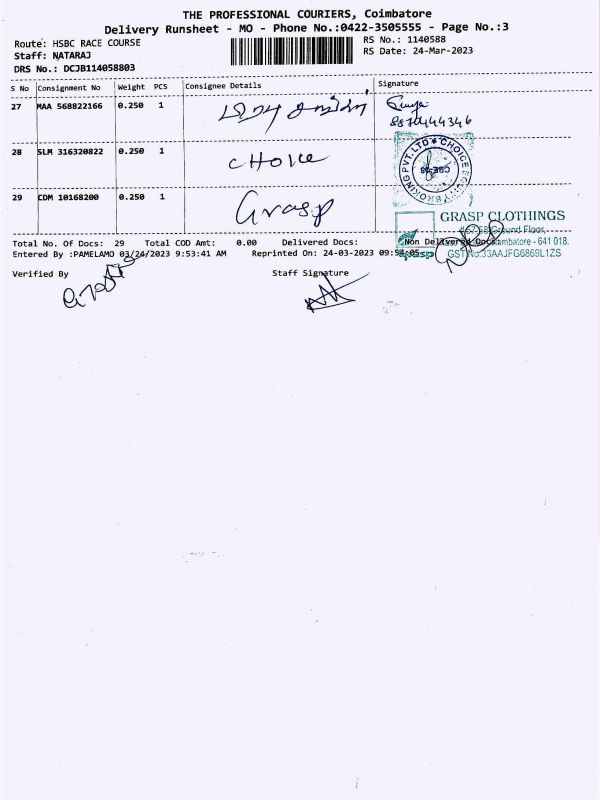 THE PROFESSIONAL COURIERS, Coimbatore
Delivery Runsheet - MO - Phone No.:0422-3505555 - Page No.:3
Route: HSBC RACE COURSE
Staff: NATARAJ
DRS No.: DCJB114058803
RS No.: 1140588
RS Date: 24-Mar-2023
S No Consignment No Weight PCS Consignee Details Signature
27 MAA 568822166 0.250 1
8870444346
28 SLM 316320822 0.250 1 CHOICE
CHOICE BROKING PVT.LTD
29 CDM 10168200 0.250 1 Grasp
GRASP CLOTHINGS
Ground Floor,
Coimbatore - 641 018.
grasp GST No.33AAJFG6869L1ZS
Total No. Of Docs: 29 Total COD Amt: 0.00 Delivered Docs: Non Delivered Docs:
Entered By :PAMELAMO 03/24/2023 9:53:41 AM Reprinted On: 24-03-2023 09:54:05
Verified By Staff Signature